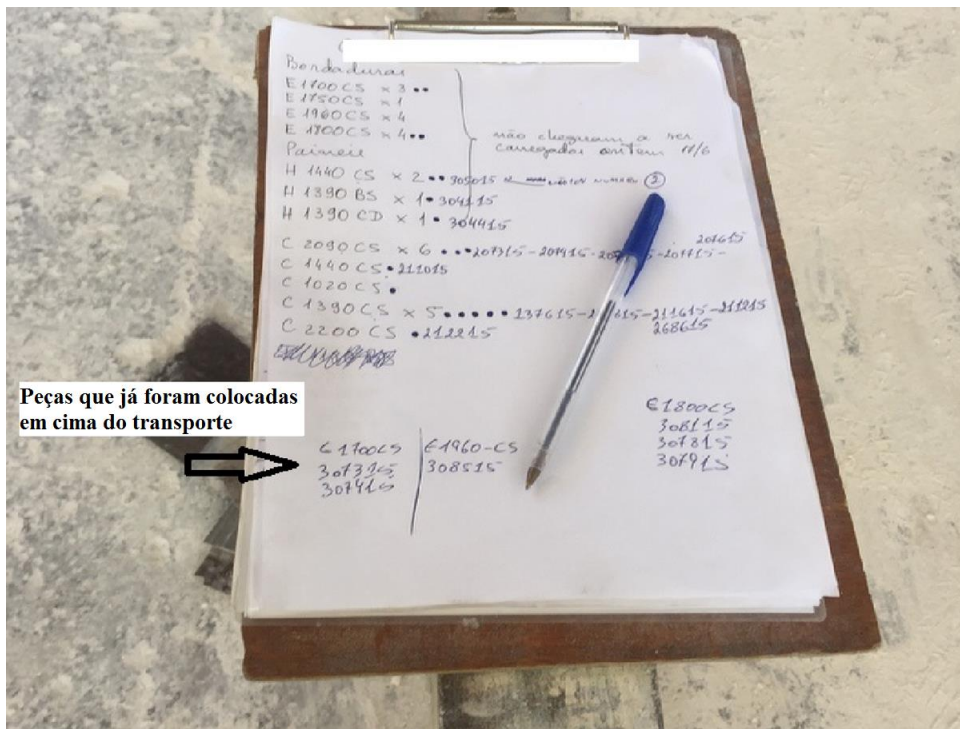 Bordaduras
E1700CS x 3 ••
E1750CS x 1
E1960CS x 4
E1800CS x 4 ••
não chegaram a ser
carregados ontem 17/6
Paineis
H 1440 CS x 2 •• 305015 mesmo numero 2
H 1390 BS x 1 • 304115
H 1390 CD x 1 • 304415
207615
C 2090 CS x 6 ••• 207315 - 207915 - 207715 -
C 1440 CS • 211015
C 1020 CS •
C 1390 CS x 5 ••••• 137615 - 211615 - 211215
268615
C 2200 CS • 212215
Peças que já foram colocadas
em cima do transporte
E1700CS
307315
307415
E1960-CS
308515
E1800CS
308115
307815
307915